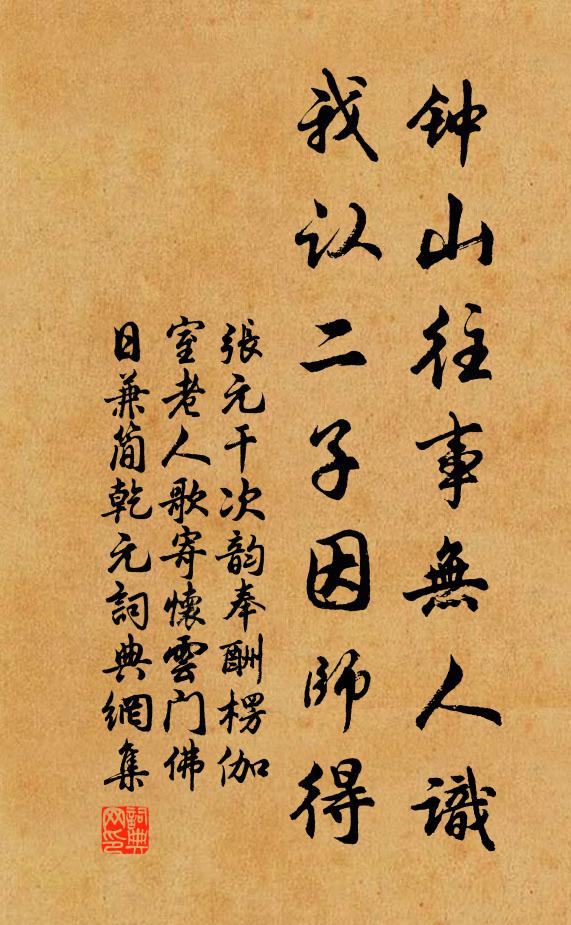 钟山往事無人識
我认二子因師得
張元干次韵奉酬楞伽
室老人歌寄懷雲门佛
日兼简乾元詞典網集
詞典
网印